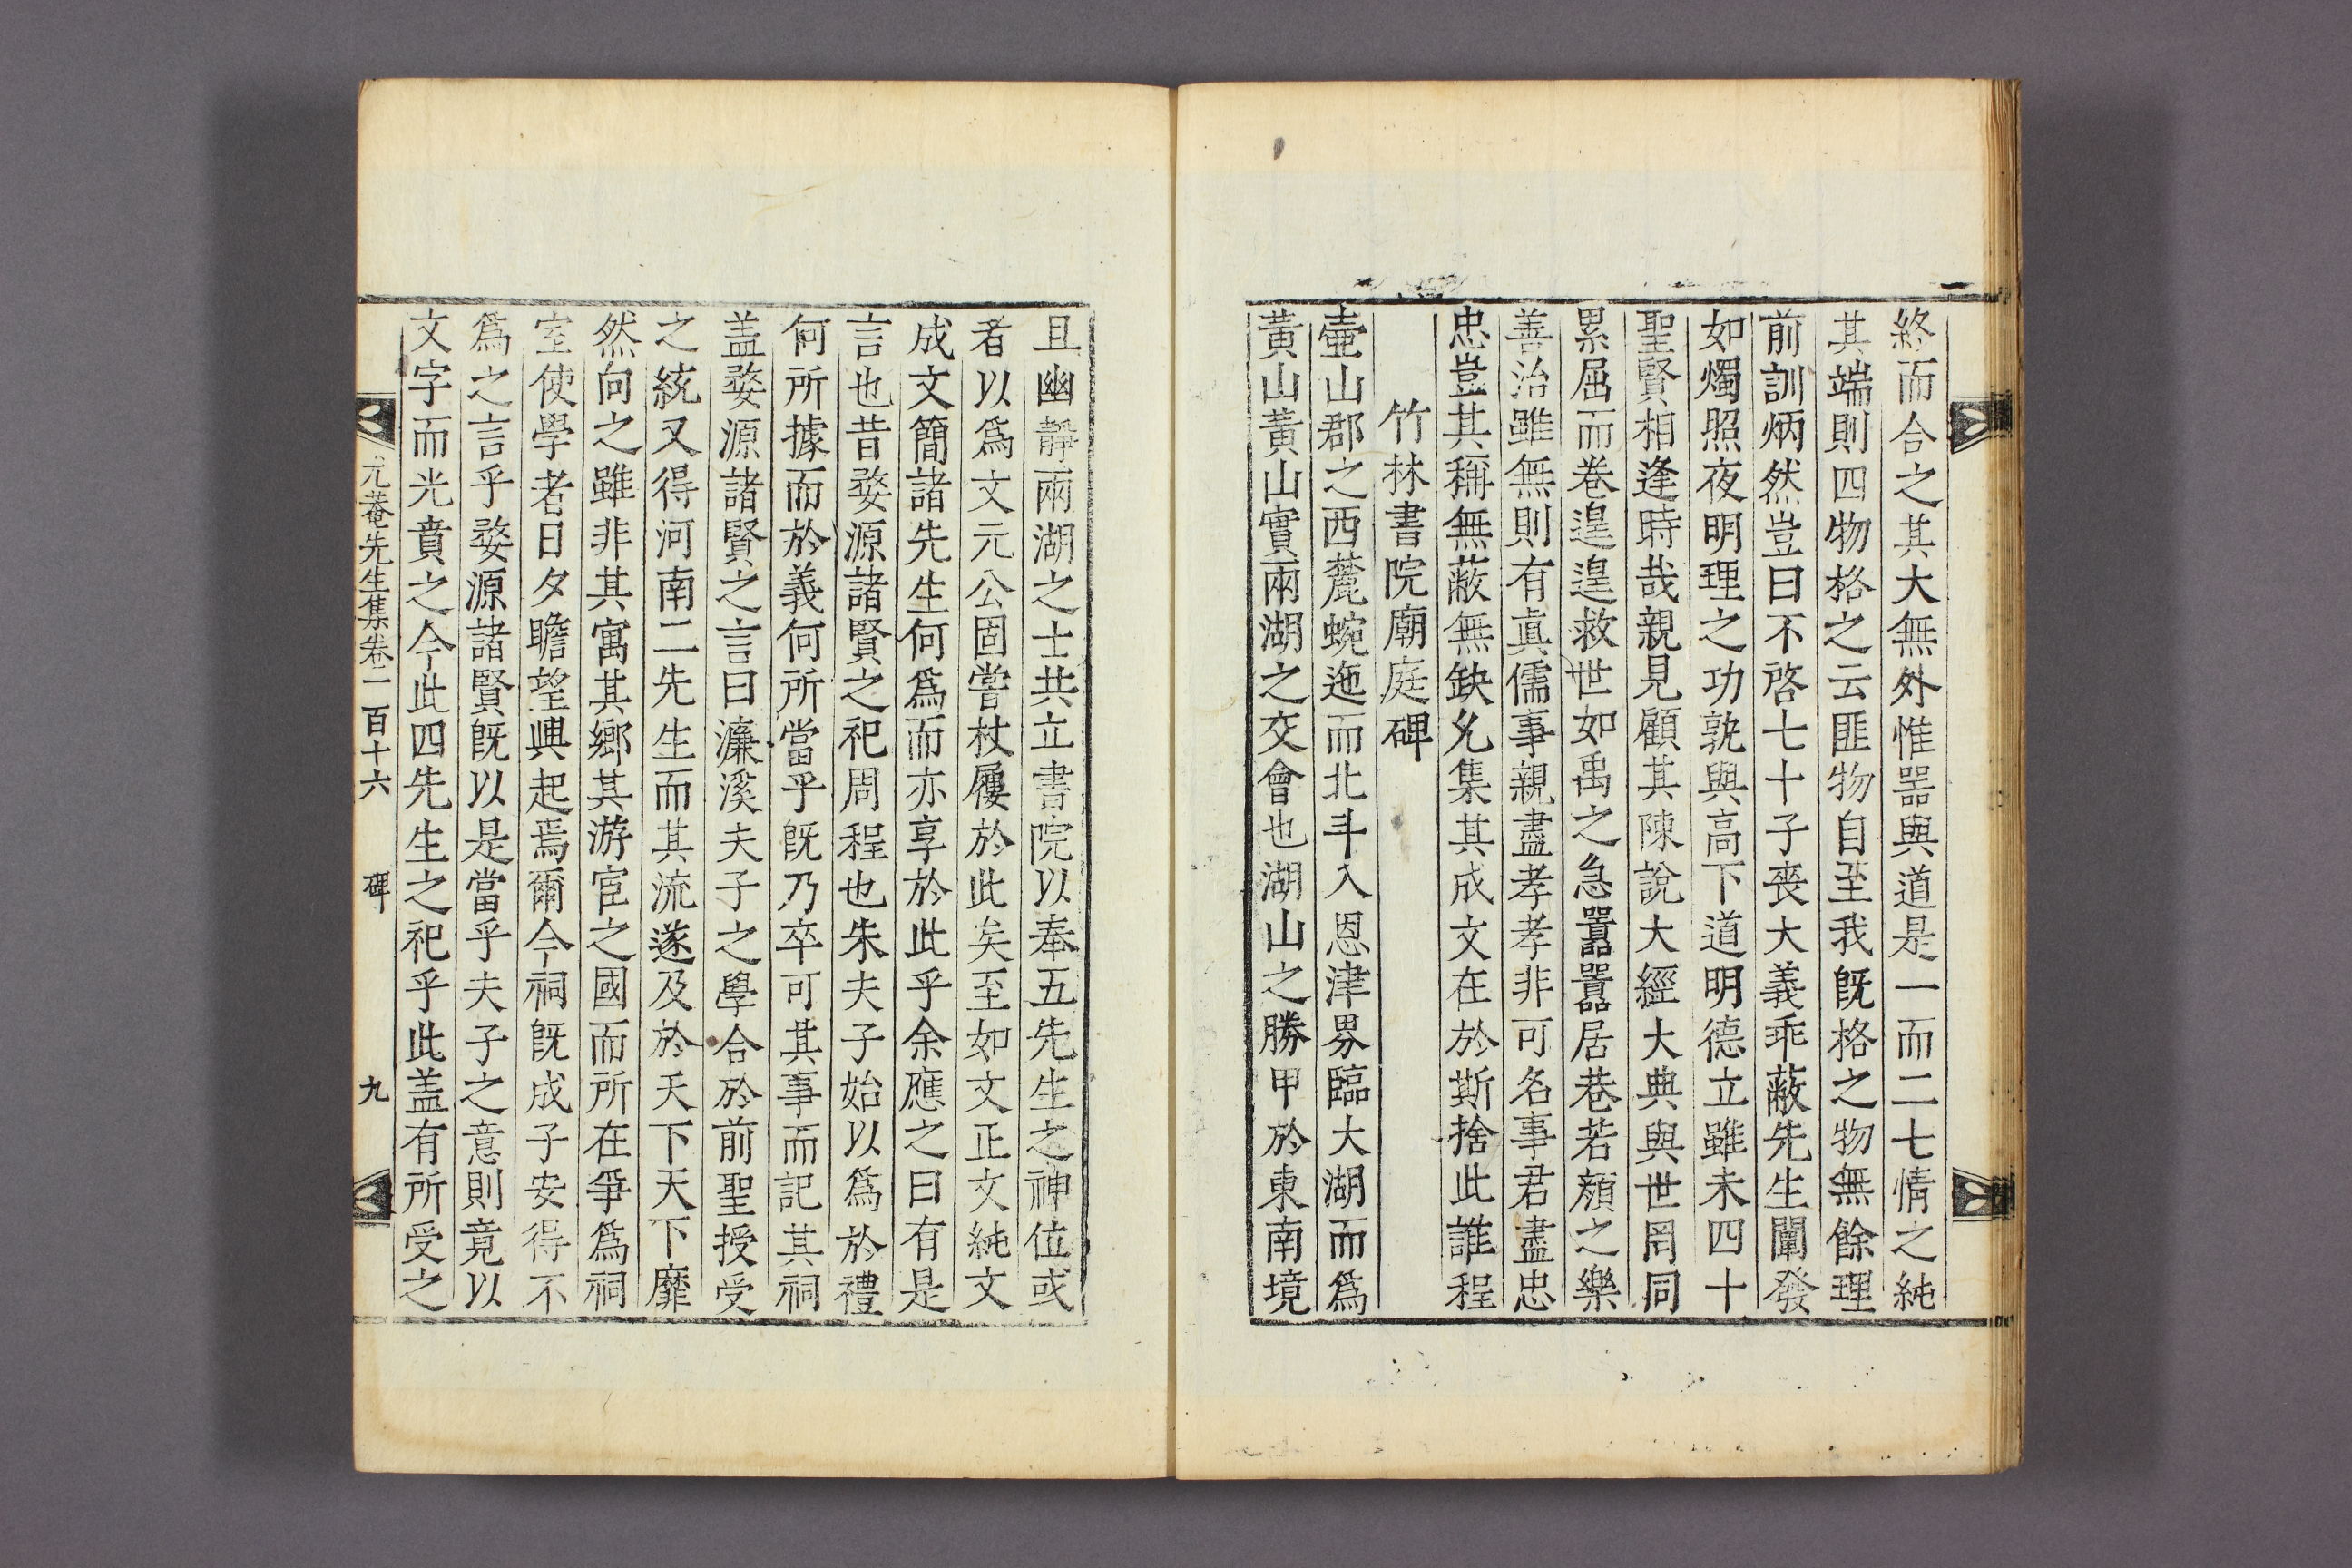 終而合之其大無外惟器與道是一而二七情之純
其端則四物格之云匪物自至我旣格之物無餘理
前訓炳然豈曰不啓七十子喪大義乖蔽先生闡發
如燭照夜明理之功孰與高下道明德立雖未四十
聖賢相逢時哉親見顧其陳說大經大典與世罔同
累屈而卷遑遑救世如禹之急囂囂居巷若顔之樂
善治雖無則有眞儒事親盡孝孝非可名事君盡忠
忠豈其稱無蔽無缺允集其成文在於斯捨此誰程
竹林書院廟庭碑
壷山郡之西麓蜿迤而北斗入恩津界臨大湖而爲
黃山黃山實兩湖之交會也湖山之勝甲於東南境
且幽靜兩湖之士共立書院以奉五先生之神位或
者以爲文元公固嘗杖屨於此矣至如文正文純文
成文簡諸先生何爲而亦享於此乎余應之曰有是
言也昔婺源諸賢之祀周程也朱夫子始以爲於禮
何所據而於義何所當乎旣乃卒可其事而記其祠
盖婺源諸賢之言曰濂溪夫子之學合於前聖授受
之統又得河南二先生而其流遂及於天下天下靡
然向之雖非其寓其鄕其游宦之國而所在爭爲祠
室使學者日夕瞻望興起焉爾今祠旣成子安得不
爲之言乎婺源諸賢旣以是當乎夫子之意則竟以
文字而光賁之今此四先生之祀乎此盖有所受之
尤菴先生集卷一百十六 碑 九